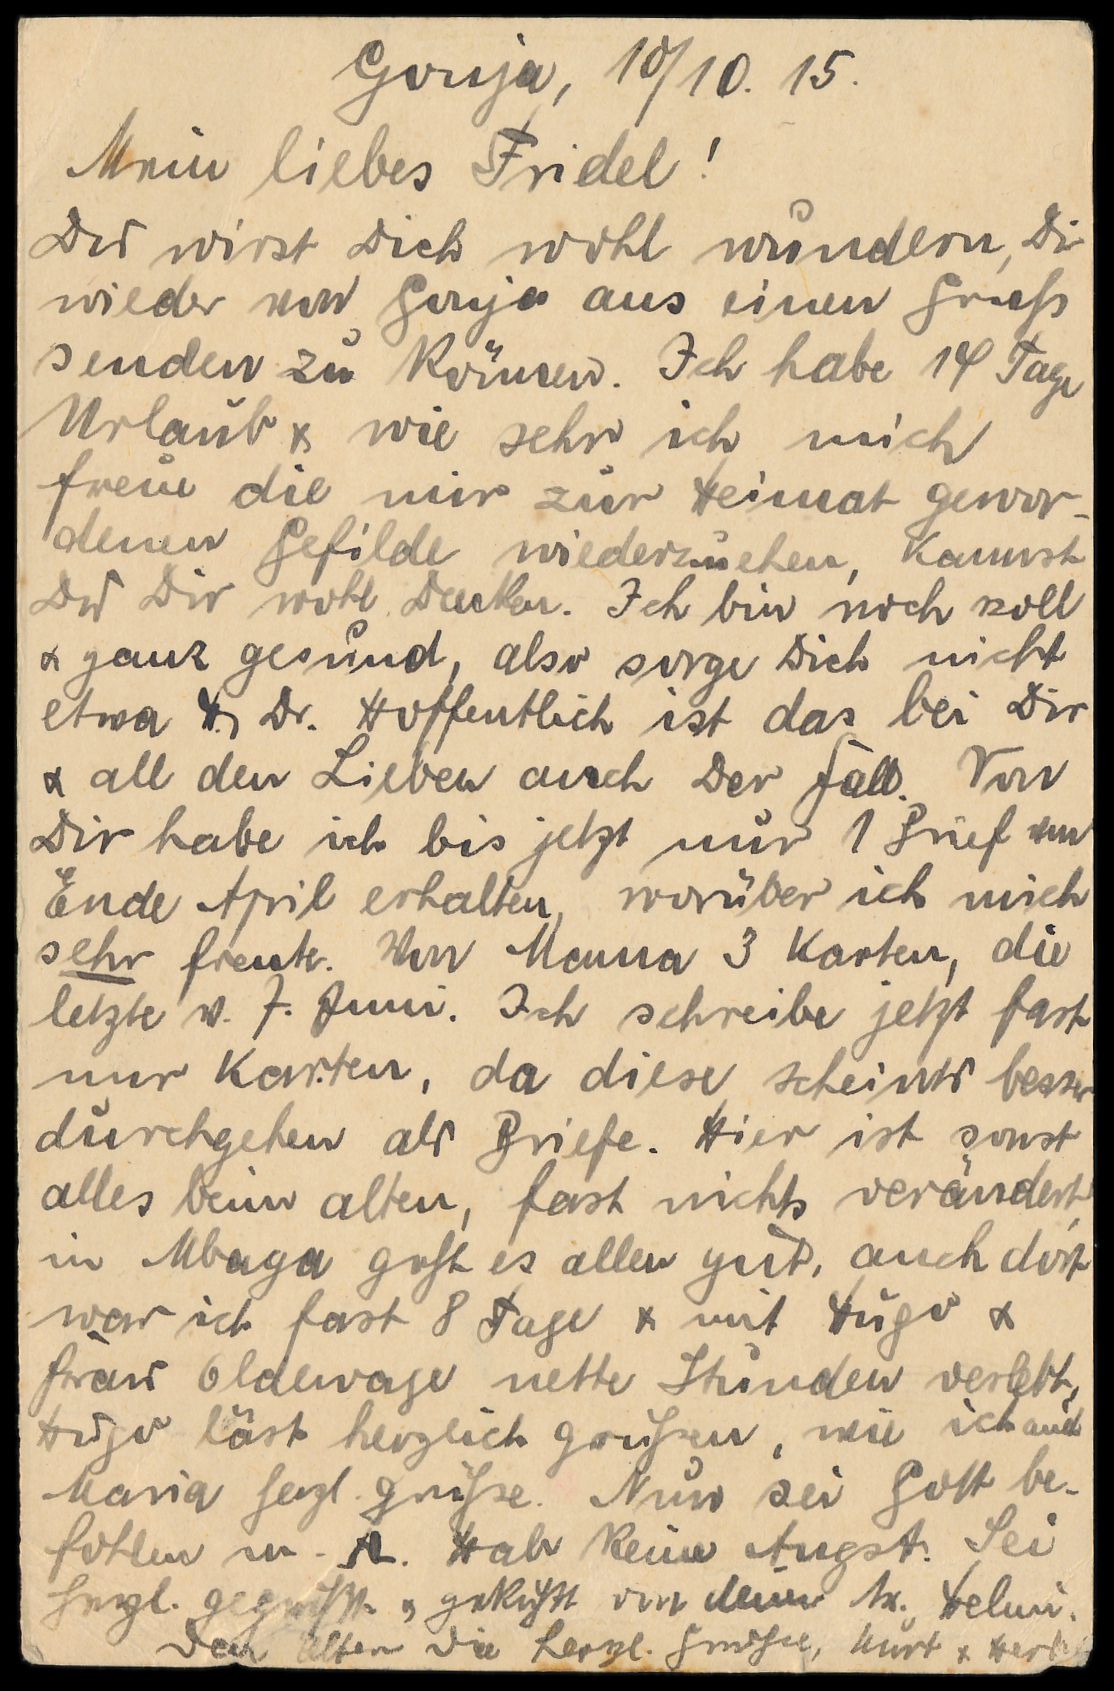 Gonja, 10/10. 15.
Mein liebes Fridel!
Du wirst Dich wohl wundern, Dir
wieder von Gonja aus einen Gruß
senden zu können. Ich habe 14 Tage
Urlaub & wie sehr ich mich
freue die mir zur Heimat gewor-
denen Gefilde wiederzusehen, kannst
Du Dir wohl denken. Ich bin noch voll
& ganz gesund, also sorge Dich nicht
etwa Hoffentlich ist das bei Dir
& all den Lieben auch der Fall. Von
Dir habe ich bis jetzt nur 1 Brief von
Ende April erhalten, worüber ich mich
sehr freute. Von Mama 3 Karten, die
letzte v. 7. Juni. Ich schreibe jetzt fast
nur Karten, da diese scheints besser
durchgehen als Briefe. Hier ist sonst
alles beim alten, fast nichts verändert,
in Mbaga geht es allen gut, auch dort
war ich fast 8 Tage & mit Hugo &
Frau Oldewage nette Stunden verlebt,
Hugo läst herzlich grüßen, wie ich auch
Maria herzl. grüße. Nun sei Gott be-
fohlen Hab keine Angst. Sei
herzl. gegrüßt & geküßt von deinem Helmi.
Den Alten die herzl. Grüße, Kurt &